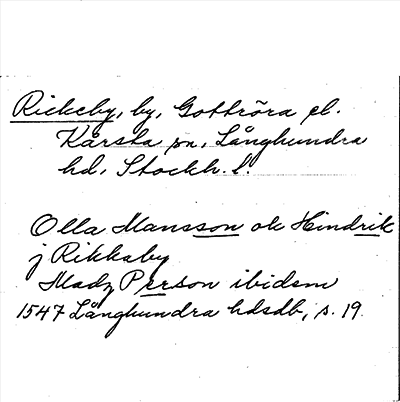 Rickeby, by, Gottröra el.
Kårsta sn, Långhundra
hd, Stockh. l.
Olla Mansson ok Hindrik
j Rikkaby
Madz Person ibidem
1547 Långhundra hdsdb, s. 19.